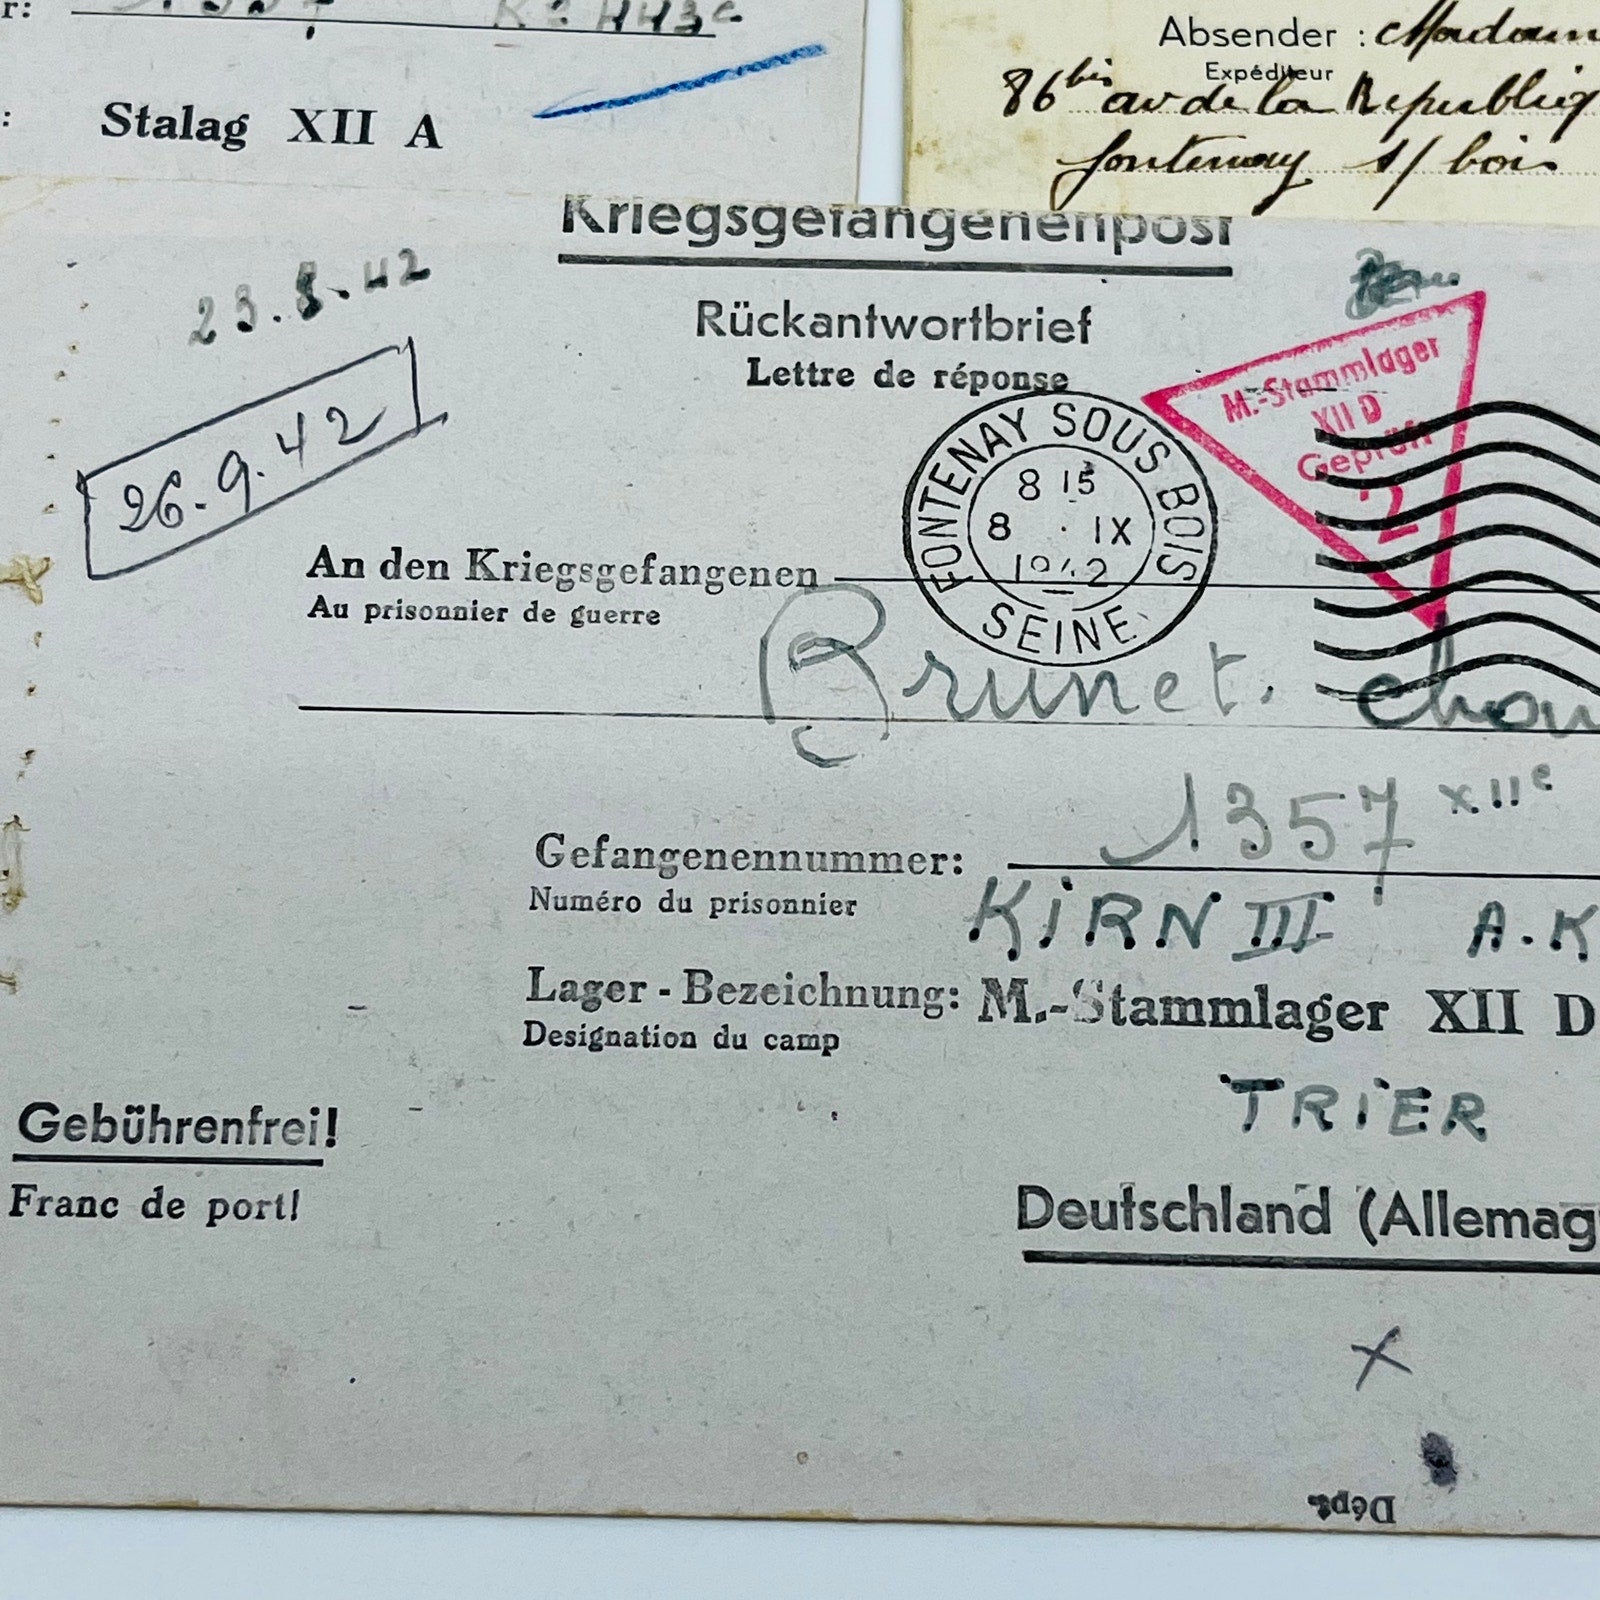 r:
: Stalag XII A
Absender :
Expéditeur
86 bis av de la Républiq
fontenay s/ bois
Kriegsgefangenenpost
23.8.42
Rückantwortbrief
Lettre de réponse
26.9.42
M.-Stammlager
XII D
Geprüft
2
FONTENAY SOUS BOIS
8 15
8 · IX
1942
SEINE
An den Kriegsgefangenen
Au prisonnier de guerre
Brunet.
Gefangenennummer: 1357 XIIc
Numéro du prisonnier
KiRN III A.K
Lager - Bezeichnung: M.-Stammlager XII D
Designation du camp
TRiER
Gebührenfrei!
Franc de port!
Deutschland (Allemag
x
Dépt.